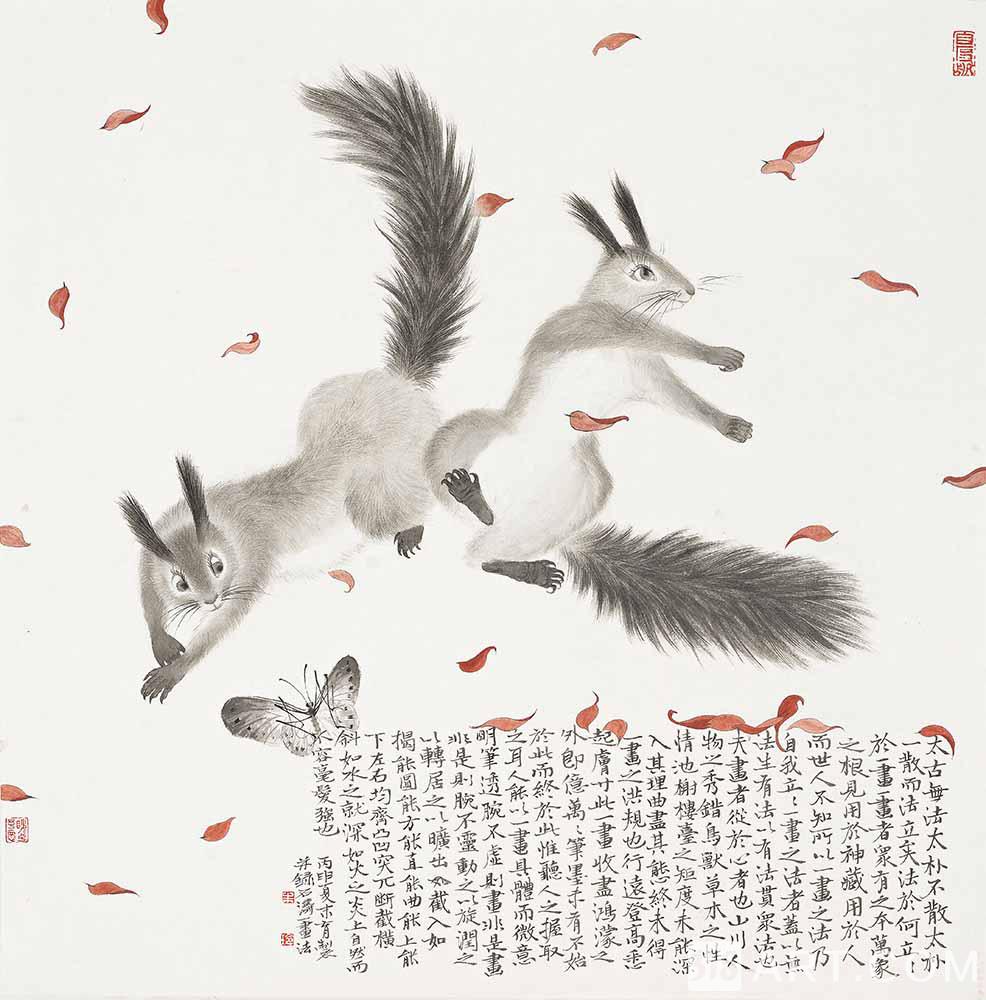 太古無法太朴不散太朴
一散而法立矣法於何立〻
於一畫一畫者眾有之本萬象
之根見用於神藏用於人
而世人不知所以一畫之法乃
自我立〻一畫之法者蓋以無
法生有法以有法貫眾法也
夫畫者從於心者也山川人
物之秀錯鳥獸草木之性
情池榭樓臺之矩度未能深
入其理曲盡其態終未得
一畫之洪規也行遠登高悉
起膚寸此一畫收盡鴻濛之
外即億萬〻筆墨未有不始
於此而終於此惟聽人之握取
之耳人能以一畫具體而微意
明筆透腕不虛則畫非是畫
非是則腕不靈動之以旋潤之
以轉居之以曠出如截入如
揭能圓能方能直能曲能上能
下左右均齊凸凹突兀斷截橫
斜如水之就深如火之炎上自然而
不容毫髮強也
丙申夏末育製
并錄石濤一畫法
ART.COM